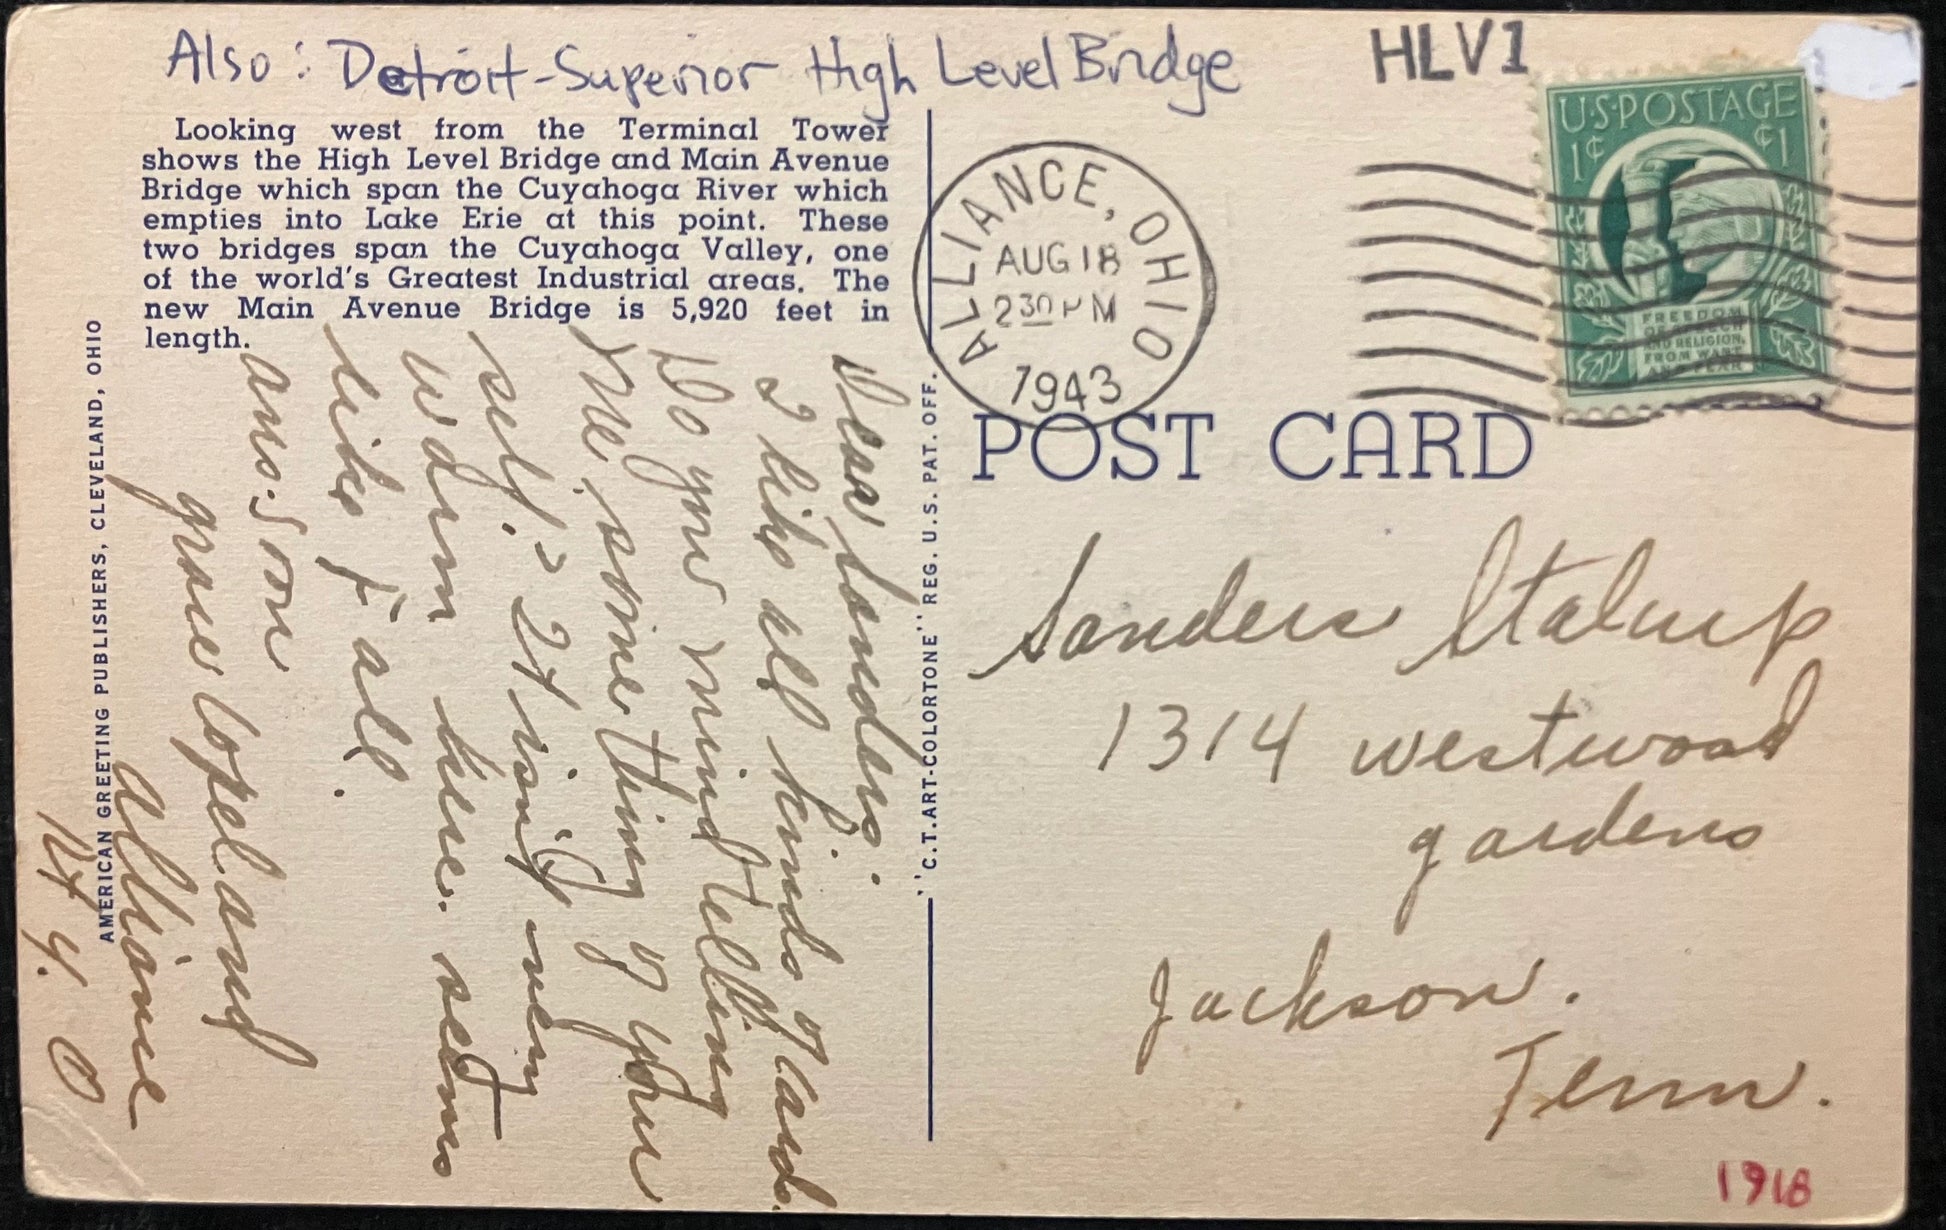 Also: Detroit-Superior High Level Bridge
HLV1
Looking west from the Terminal Tower
shows the High Level Bridge and Main Avenue
Bridge which span the Cuyahoga River which
empties into Lake Erie at this point. These
two bridges span the Cuyahoga Valley, one
of the world's Greatest Industrial areas. The
new Main Avenue Bridge is 5,920 feet in
length.
AMERICAN GREETING PUBLISHERS, CLEVELAND, OHIO
"C.T.ART-COLORTONE" REG. U.S. PAT. OFF.
ALLIANCE, OHIO
AUG 18
2 30 PM
1943
U.S. POSTAGE
1¢ ¢1
FREEDOM
OF SPEECH
AND RELIGION,
FROM WANT
AND FEAR
POST CARD
Dear Sanders.
I like all kinds of Cards.
Do you mind telling
Me something of your
self.? It is very
warm here. seems
like Fall.
ans. Soon
Grace Copeland
Alliance
Rt 4. O
Sanders Stalcup
1314 westwood
gardens
Jackson.
Tenn.
1918